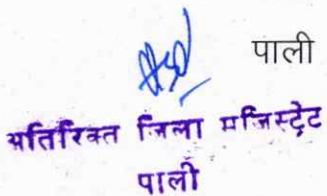 पाली
अतिरिक्त जिला मजिस्ट्रेट
पाली